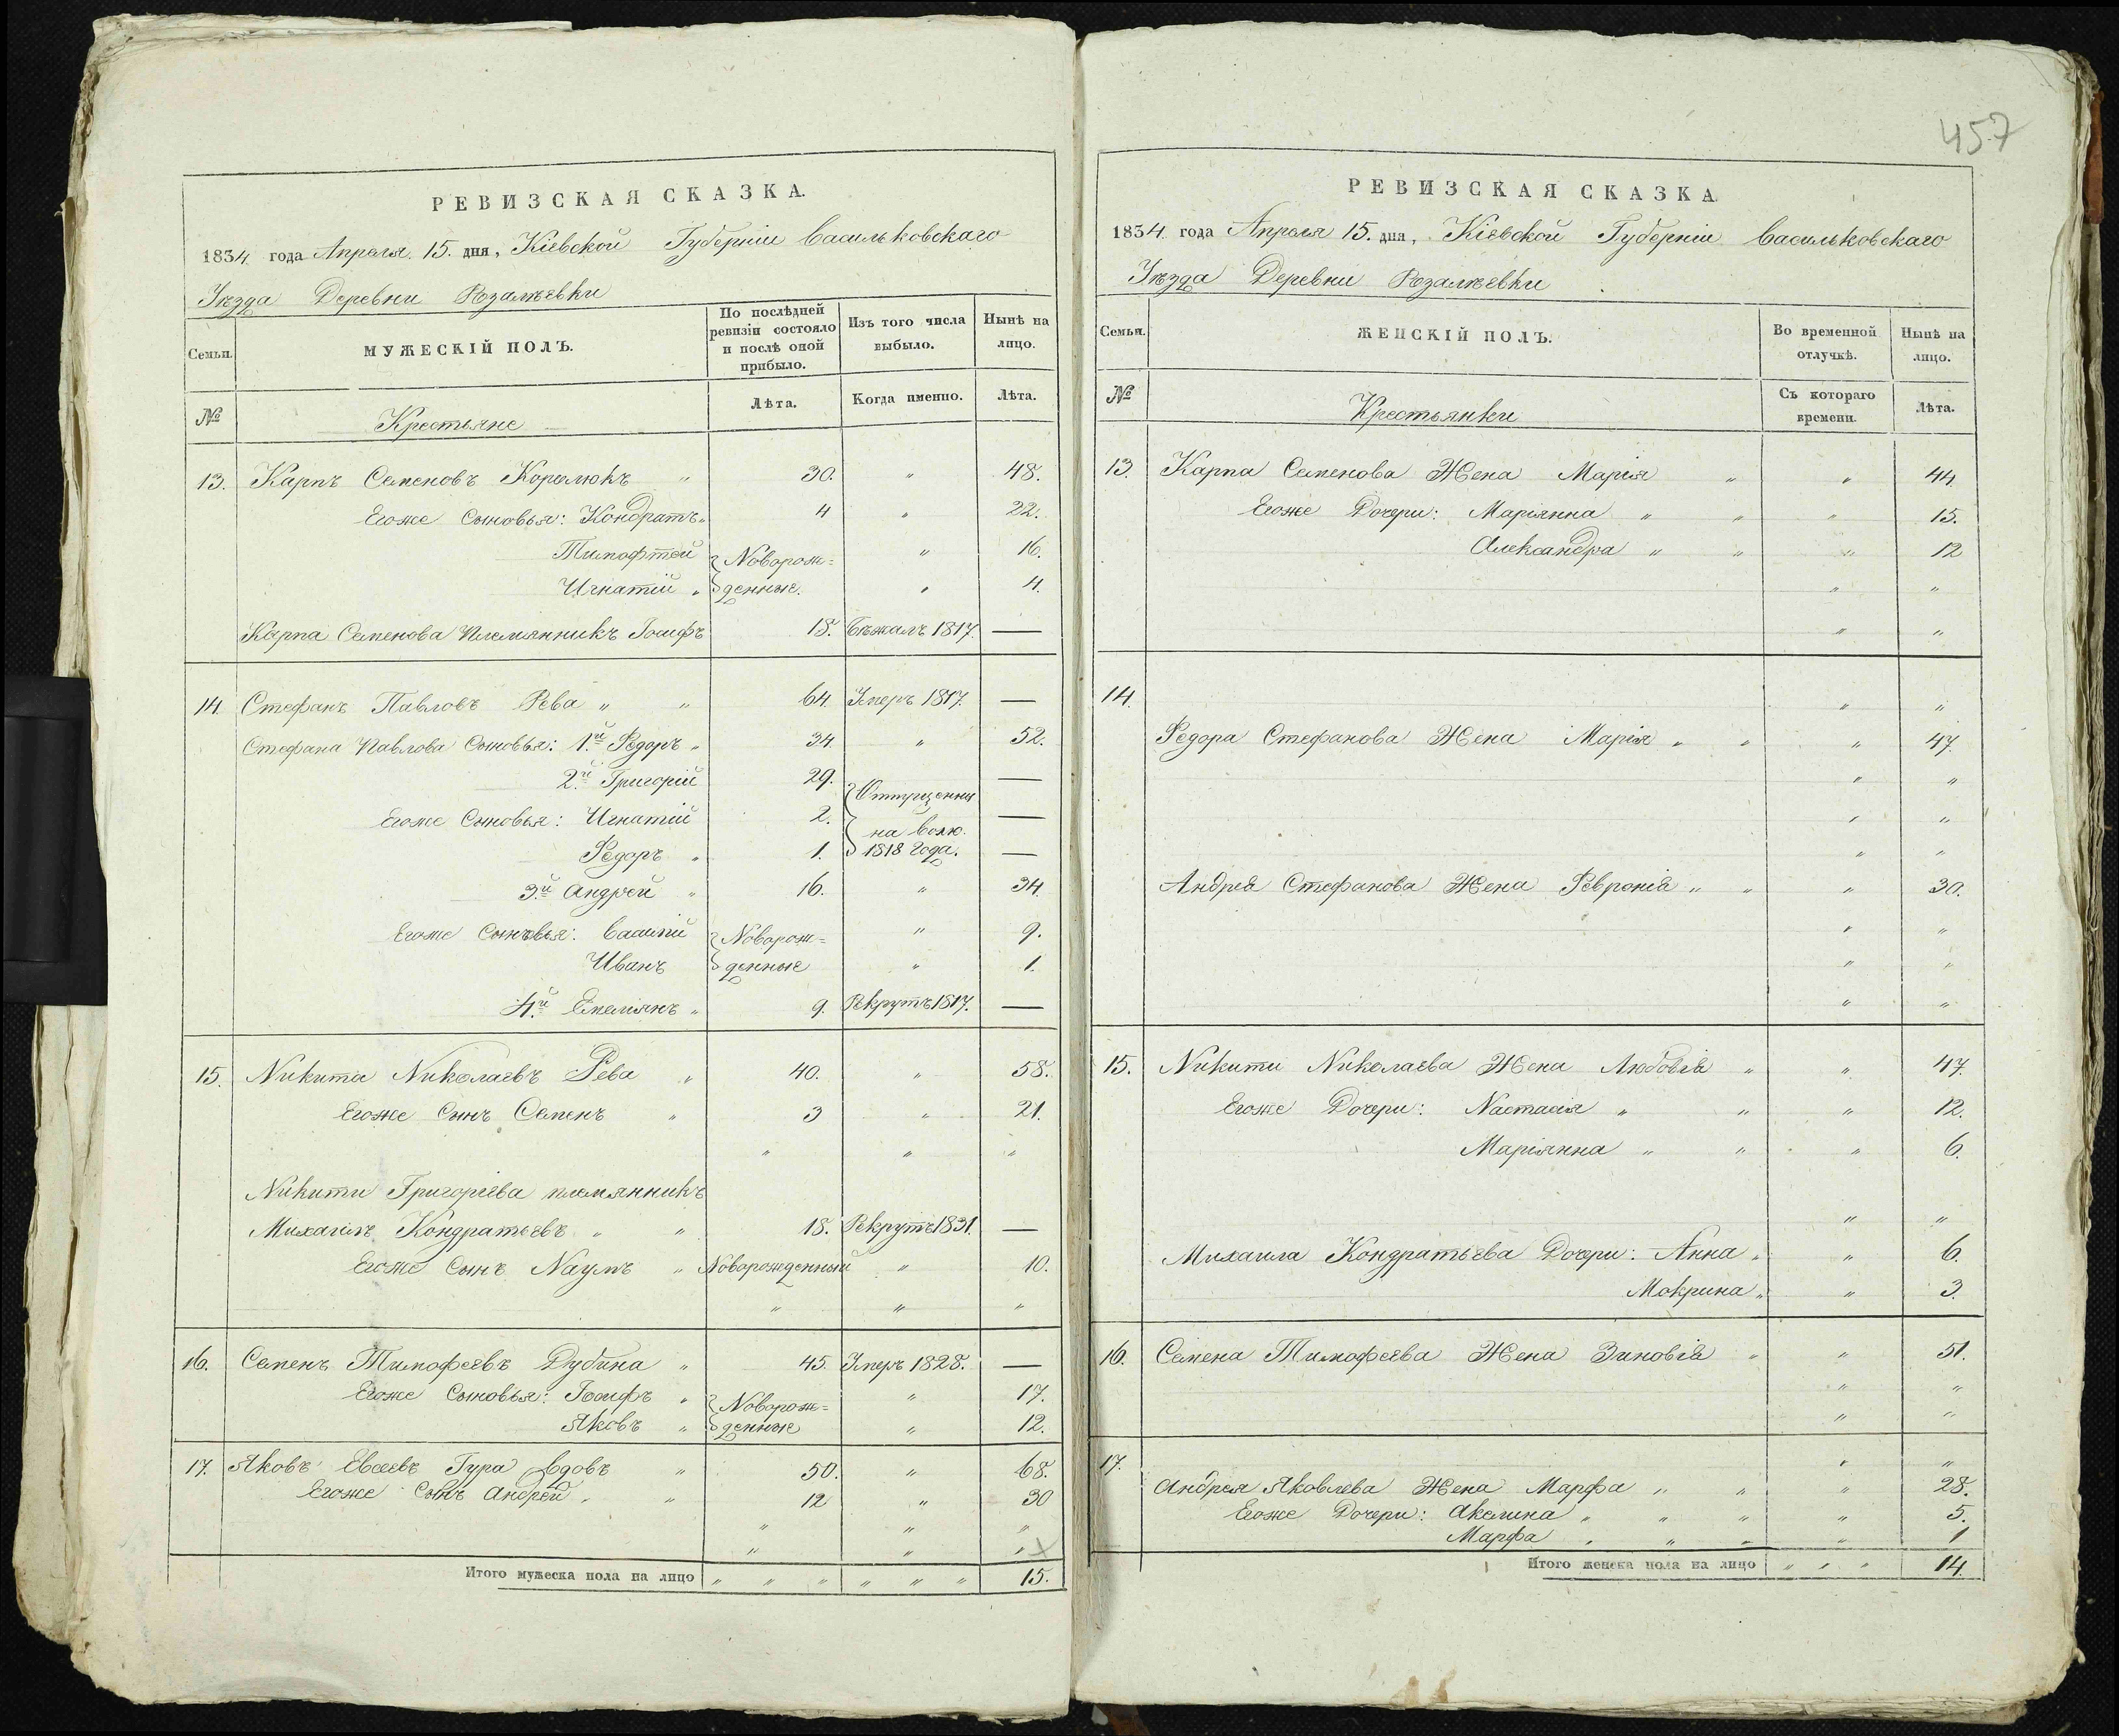 457
РЕВИЗСКАЯ СКАЗКА.
1834 года Апреля 15. дня, Кіевской Губерніи Васильковскаго
Уѣзда Деревни Розалѣевки
Семьи. МУЖЕСКІЙ ПОЛЪ. По послѣдней ревизіи состояло и послѣ оной прибыло. Изъ того числа выбыло. Нынѣ на лицо.
№ Крестьяне Лѣта. Когда именно. Лѣта.
13. Карпъ Семеновъ " 30. " 48.
Егоже Сыновья: Кондратъ " 4 " 22.
Тимофтей Новорож= " 16.
Игнатій " денные. " 4.
Карпа Семенова племянникъ Іосифъ 18. Бѣжалъ 1817. —
14. Стефанъ Павловъ Рева " " 64. Умеръ 1817. —
Стефана Павлова Сыновья: 1й Федоръ " 34. " 52.
2й Григорій 29. —
Егоже Сыновья: Игнатій 2. Отпущенны на волю —
Федоръ " 1. 1818 года. —
3й Андрей " 16. " 34.
Егоже Сыновья: Василій Новорож= " 9.
Иванъ денные " 1.
4й Емельянъ " 9. Рекрутъ 1817. —
15. Никита Николаевъ Рева " 40. " 58.
Егоже Сынъ Семенъ " 3 " 21.
" " "
Никити Григоріева племянникъ
Михаилъ Кондратьевъ " " 18. Рекрутъ 1831. —
Егоже Сынъ Наумъ " Новорожденный " 10.
" " "
16. Семенъ Тимофеевъ Дубина " 45. Умеръ 1828. —
Егоже Сыновья: Іосифъ " Новорож= " 17.
Яковъ " денные " 12.
17. Яковъ Евсеевъ Гура вдовъ " 50. " 68.
Егоже Сынъ Андрей " " 12 " 30
" " "
" " "
Итого мужеска пола на лицо " " " " " " 15.
РЕВИЗСКАЯ СКАЗКА
1834 года Апреля 15. дня, Кіевской Губерніи Васильковскаго
Уѣзда Деревни Розалѣевки
Семьи. ЖЕНСКІЙ ПОЛЪ. Во временной отлучкѣ. Нынѣ на лицо.
№ Крестьянки Съ котораго времени. Лѣта.
13. Карпа Семенова Жена Марія " " 44.
Егоже Дочери: Маріянна " " " 15.
Александра " " " 12
" "
" "
14. " "
Федора Стефанова Жена Марія " " " 47.
" "
" "
" "
Андрея Стефанова Жена Февронія " " " 30.
" "
" "
" "
15. Никити Николаева Жена Любовія " " 47.
Егоже Дочери: Настасія " " " 12.
Маріянна " " " 6.
" "
Михаила Кондратьева Дочери: Анна " " 6.
Мокрина " " 3.
16. Семена Тимофеева Жена Зиновія " " 51.
" "
" "
17. " "
Андрея Яковлева Жена Марфа " " " 28.
Егоже Дочери: Акелина " " " " 5.
Марфа " " " " 1
Итого женска пола на лицо " " " 14.